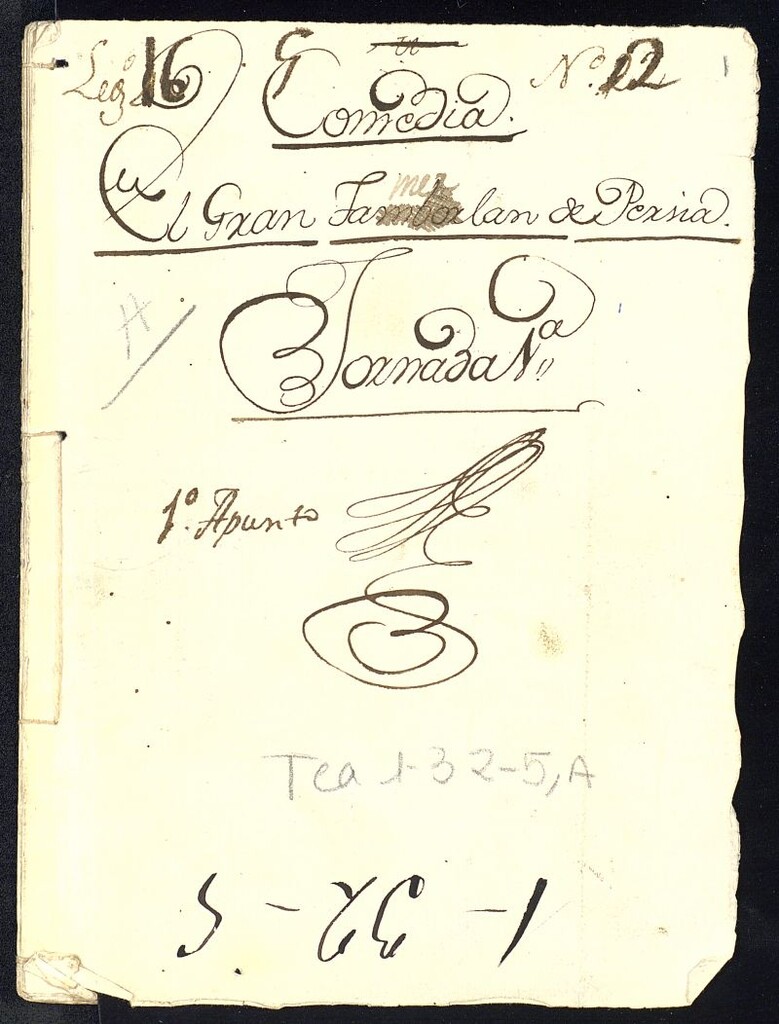 Leg.º 16 G N.º 22 1
Comedia.
El Gran Tamerlan de Persia.
Jornada 1ª
A
1.º Apunto
Tea 1-32-5, A
1 - 32 - 5